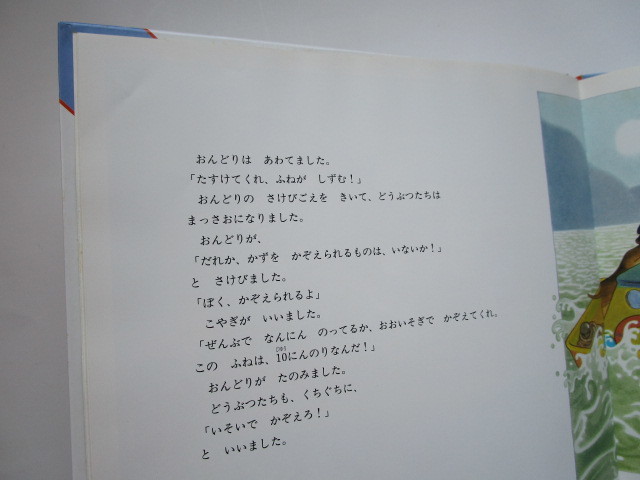 おんどりは　あわてました。
「たすけてくれ、ふねが　しずむ！」
おんどりの　さけびごえを　きいて、どうぶつたちは
まっさおになりました。
おんどりが、
「だれか、かずを　かぞえられるものは、いないか！」
と　さけびました。
「ぼく、かぞえられるよ」
こやぎが　いいました。
「ぜんぶで　なんにん　のってるか、おおいそぎで　かぞえてくれ。
この　ふねは、10にんのりなんだ！」
おんどりが　たのみました。
どうぶつたちも、くちぐちに、
「いそいで　かぞえろ！」
と　いいました。